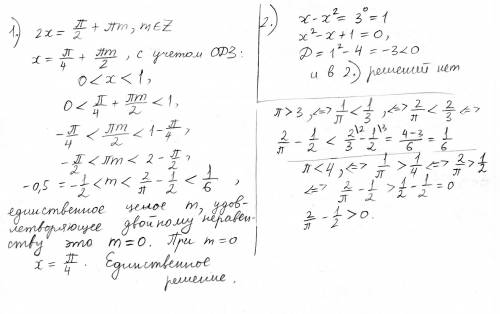 1.) 2x = π/2 + πm, m∈Z
x = π/4 + πm/2, с учетом ОДЗ:
0 < x < 1,
0 < π/4 + πm/2 < 1,
-π/4 < πm/2 < 1 - π/4,
-π/2 < πm < 2 - π/2,
-0,5 = -1/2 < m < 2/π - 1/2 < 1/6,
единственное целое m, удов-
летворяющее двойному неравен-
ству это m=0. При m=0
x = π/4. Единственное
решение.
2.) x - x² = 3⁰ = 1
x² - x + 1 = 0,
D = 1² - 4 = -3 < 0
и в 2.) решений нет
π > 3, <=> 1/π < 1/3, <=> 2/π < 2/3 <=>
2/π - 1/2 < 2/3\2 - 1/2\3 = 4-3/6 = 1/6
π < 4, <=> 1/π > 1/4 <=> 2/π > 1/2
<=> 2/π - 1/2 > 1/2 - 1/2 = 0
2/π - 1/2 > 0.